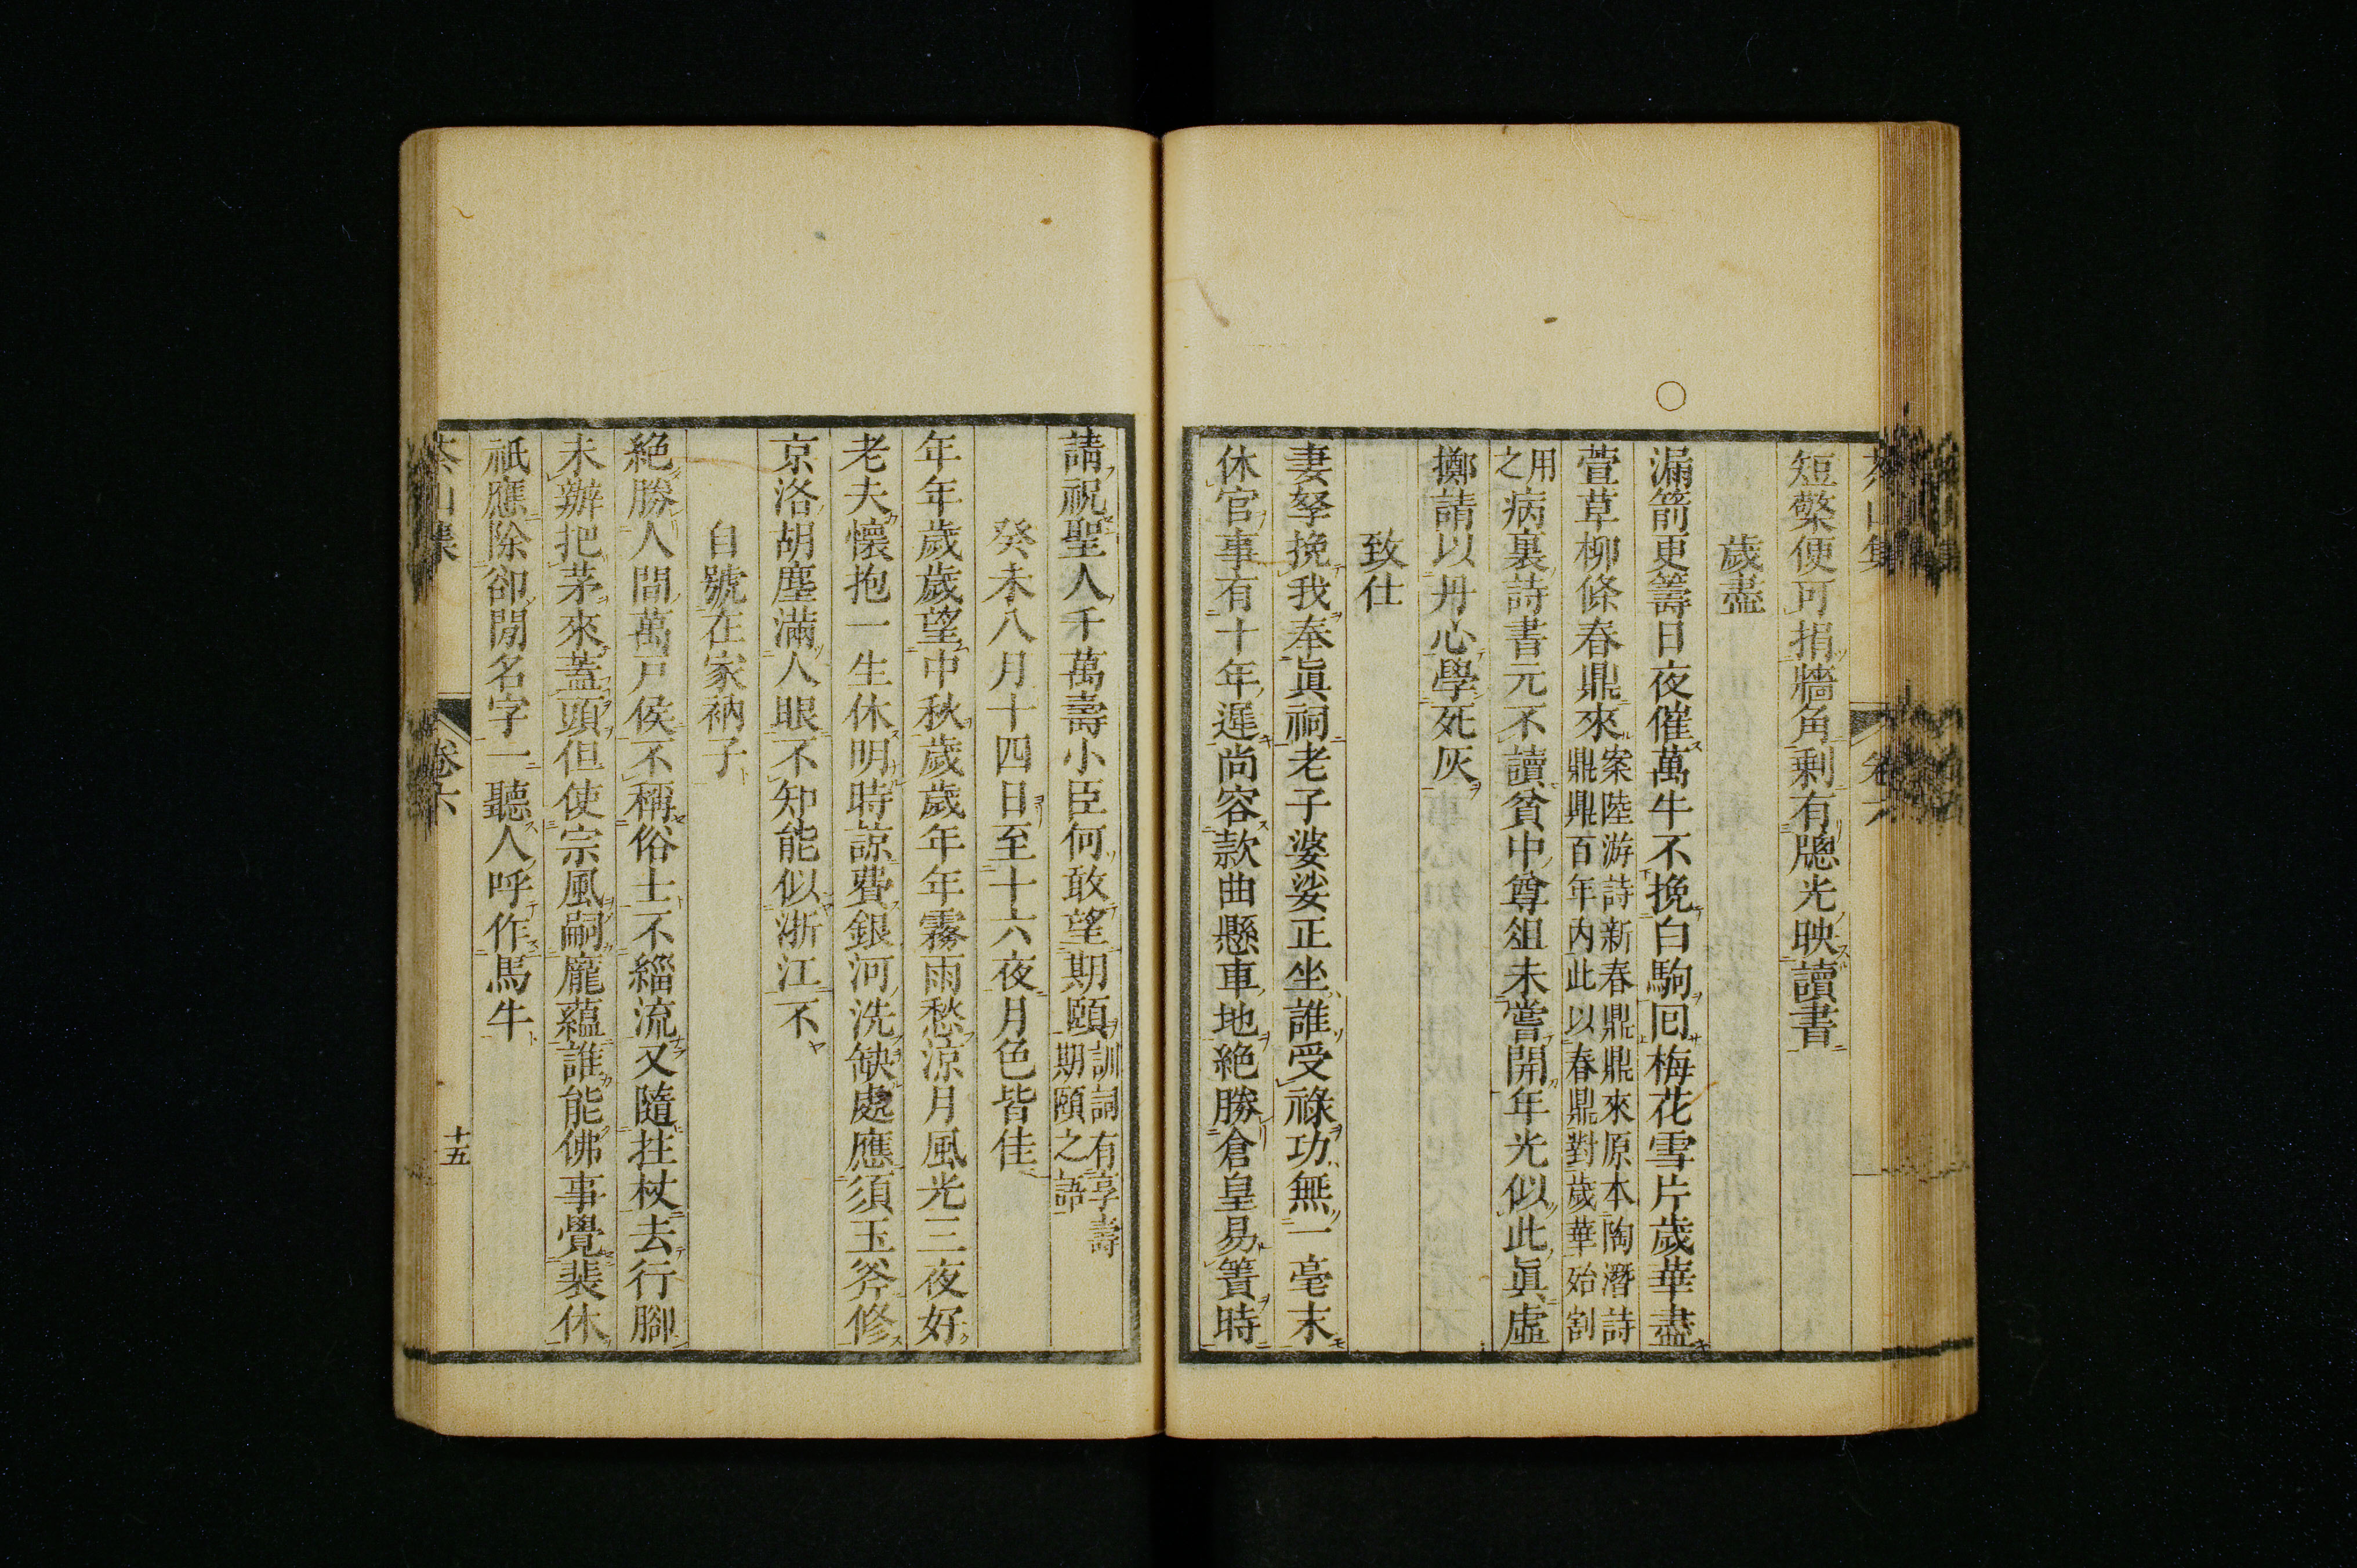 短檠便可捐牆角剩有牕光映讀書
歲盡
○
漏箭更籌日夜催萬牛不挽白駒回梅花雪片歲華盡
萱草柳條春鼎來案陸游詩新春鼎鼎來原本陶潛詩
鼎鼎百年內此以春鼎對歲華始割
用
之病裏詩書元不讀貧中尊俎未嘗開年光似此眞虛
擲請以丹心學死灰
致仕
妻孥挽我奉眞祠老子婆娑正坐誰受祿功無一毫末
休官事有十年遲尚容款曲懸車地絶勝倉皇易簀時
請祝聖人千萬壽小臣何敢望期頤訓詞有享壽
期頤之語
癸未八月十四日至十六夜月色皆佳
年年歲歲望中秋歲歲年年霧雨愁涼月風光三夜好
老夫懷抱一生休明時諒費銀河洗缺處應須玉斧修
京洛胡塵滿人眼不知能似浙江不
自號在家衲子
絶勝人間萬戸侯不稱俗士不緇流又隨拄杖去行腳
未辦把茅來蓋頭但使宗風嗣龐蘊誰能佛事覺裴休
祇應除卻閒名字一聽人呼作馬牛
茶山集
卷六
十五